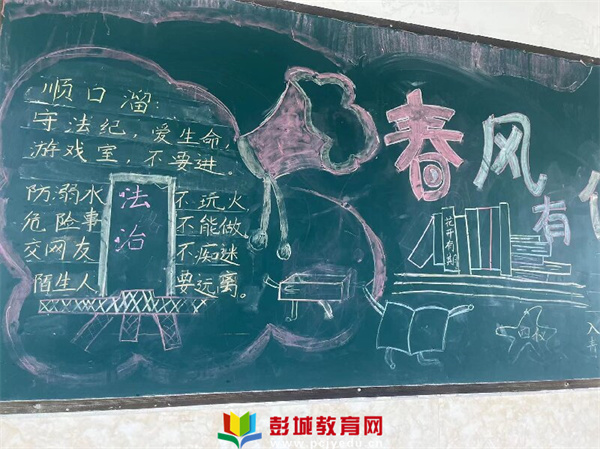 顺口溜：
守法纪，爱生命，
游戏室，不要进。
防溺水 不玩火
危险事 不能做
交网友 不痴迷
陌生人 要远离。
法治
春风有
花开有期
入
青
彭城教育网
www.pcjyedu.cn